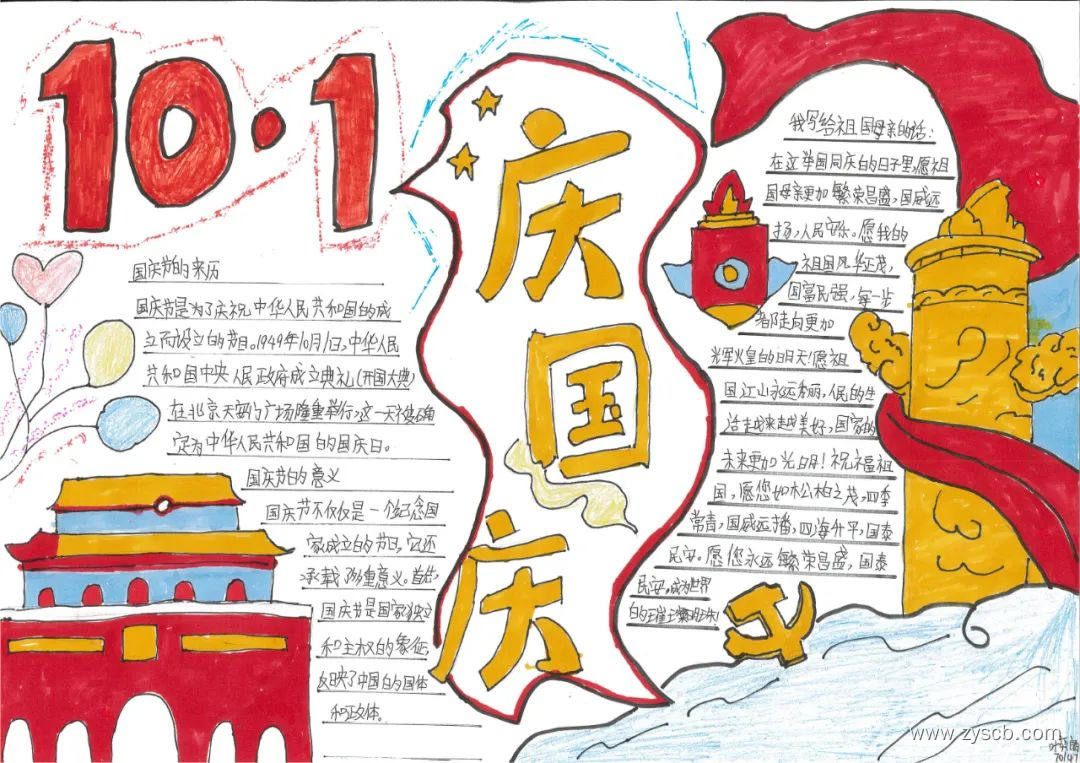 10·1
国庆节的来历
国庆节是为了庆祝中华人民共和国的成
立而设立的节日。1949年10月1日,中华人民
共和国中央人民政府成立典礼(开国大典)
在北京天安门广场隆重举行,这一天被确
定为中华人民共和国的国庆日。
国庆节的意义
国庆节不仅仅是一个纪念国
家成立的节日,它还
承载了多重意义。首先,
国庆节是国家独立
和主权的象征,
反映了中国的国体
和政体。
庆
国
庆
我写给祖国母亲的话:
在这举国同庆的日子里,愿祖
国母亲更加繁荣昌盛,国威远
扬,人民安乐。愿我的
祖国风华正茂,
国富民强,每一步
都陆向更加
光辉火皇的明天!愿祖
国江山永远秀丽,人民的生
活越来越美好,国家的
未来更加光明!祝福祖
国,愿您如松柏之茂,四季
常青,国威远播,四海升平,国泰
民安。愿您永远繁荣昌盛,国泰
民安,成为世界
的璀璨明珠!
www.zyscb.com